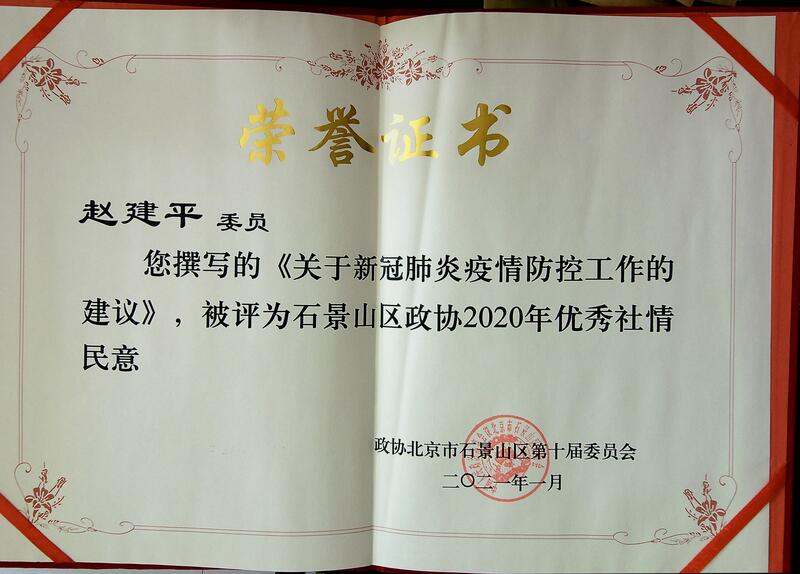 荣誉证书
赵建平 委员
您撰写的《关于新冠肺炎疫情防控工作的
建议》，被评为石景山区政协2020年优秀社情
民意
政协北京市石景山区第十届委员会
二〇二一年一月